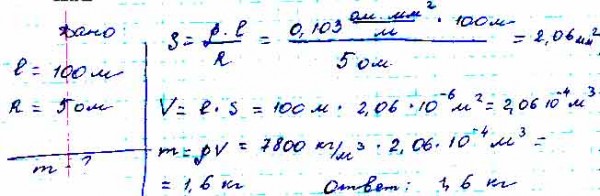 Дано
l = 100 м
R = 5 ом
m - ?
S = ρ·l / R = 0,103 ом·мм²/м · 100 м / 5 ом = 2,06 мм²
V = l · S = 100 м · 2,06 · 10⁻⁶ м² = 2,06 10⁻⁴ м³
m = ρV = 7800 кг/м³ · 2,06 · 10⁻⁴ м³ =
= 1,6 кг Ответ: 1,6 кг